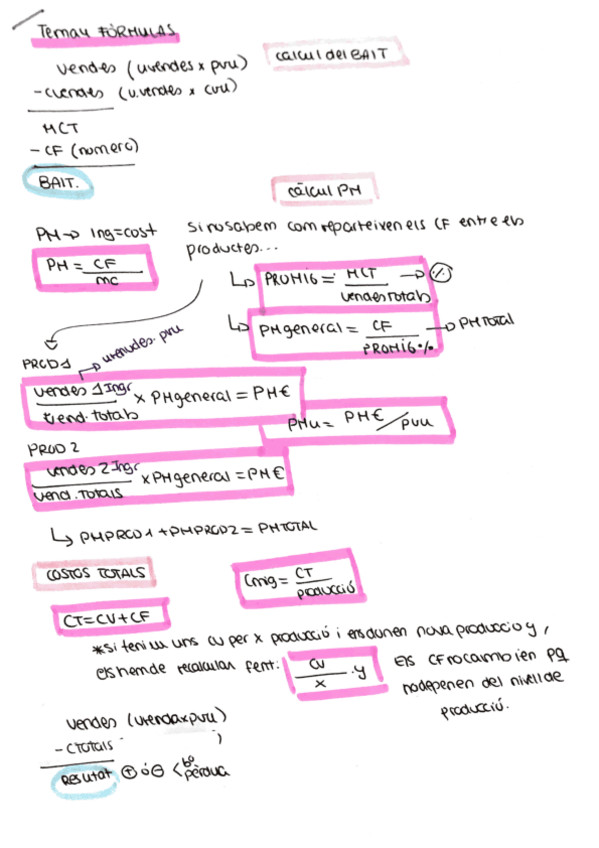 Tema 4 FÓRMULAS
càlcul del BAIT
vendes (u vendes x pvu)
- cvendes (u.vendes x cvu)
MCT
- CF (numero)
BAIT.
càlcul PM
PM → Ing=cost
PM = CF / mc
si no sabem com reparteixen els CF entre els
productes...
↳ PROMIG = MCT / vendes totals → %
↳ PM general = CF / PROMIG % → PM TOTAL
PROD 1
→ u vendes · pvu
vendes 1 Ingr / vend. totals x PM general = PM €
PMu = PM € / pvu
PROD 2
vendes 2 Ingr / vend. Totals x PM general = PM €
↳ PM PROD 1 + PM PROD 2 = PM TOTAL
COSTOS TOTALS
Cmig = CT / producció
CT = CV + CF
*si tenim uns cv per x producció i ens donen nova producció y,
els hem de recalcular fent: cv / x · y
Els CF no canvien pq
no depenen del nivell de
producció.
vendes (u vendaxpvu)
- CTotals
Resultat + ó - < bº
pèrdua